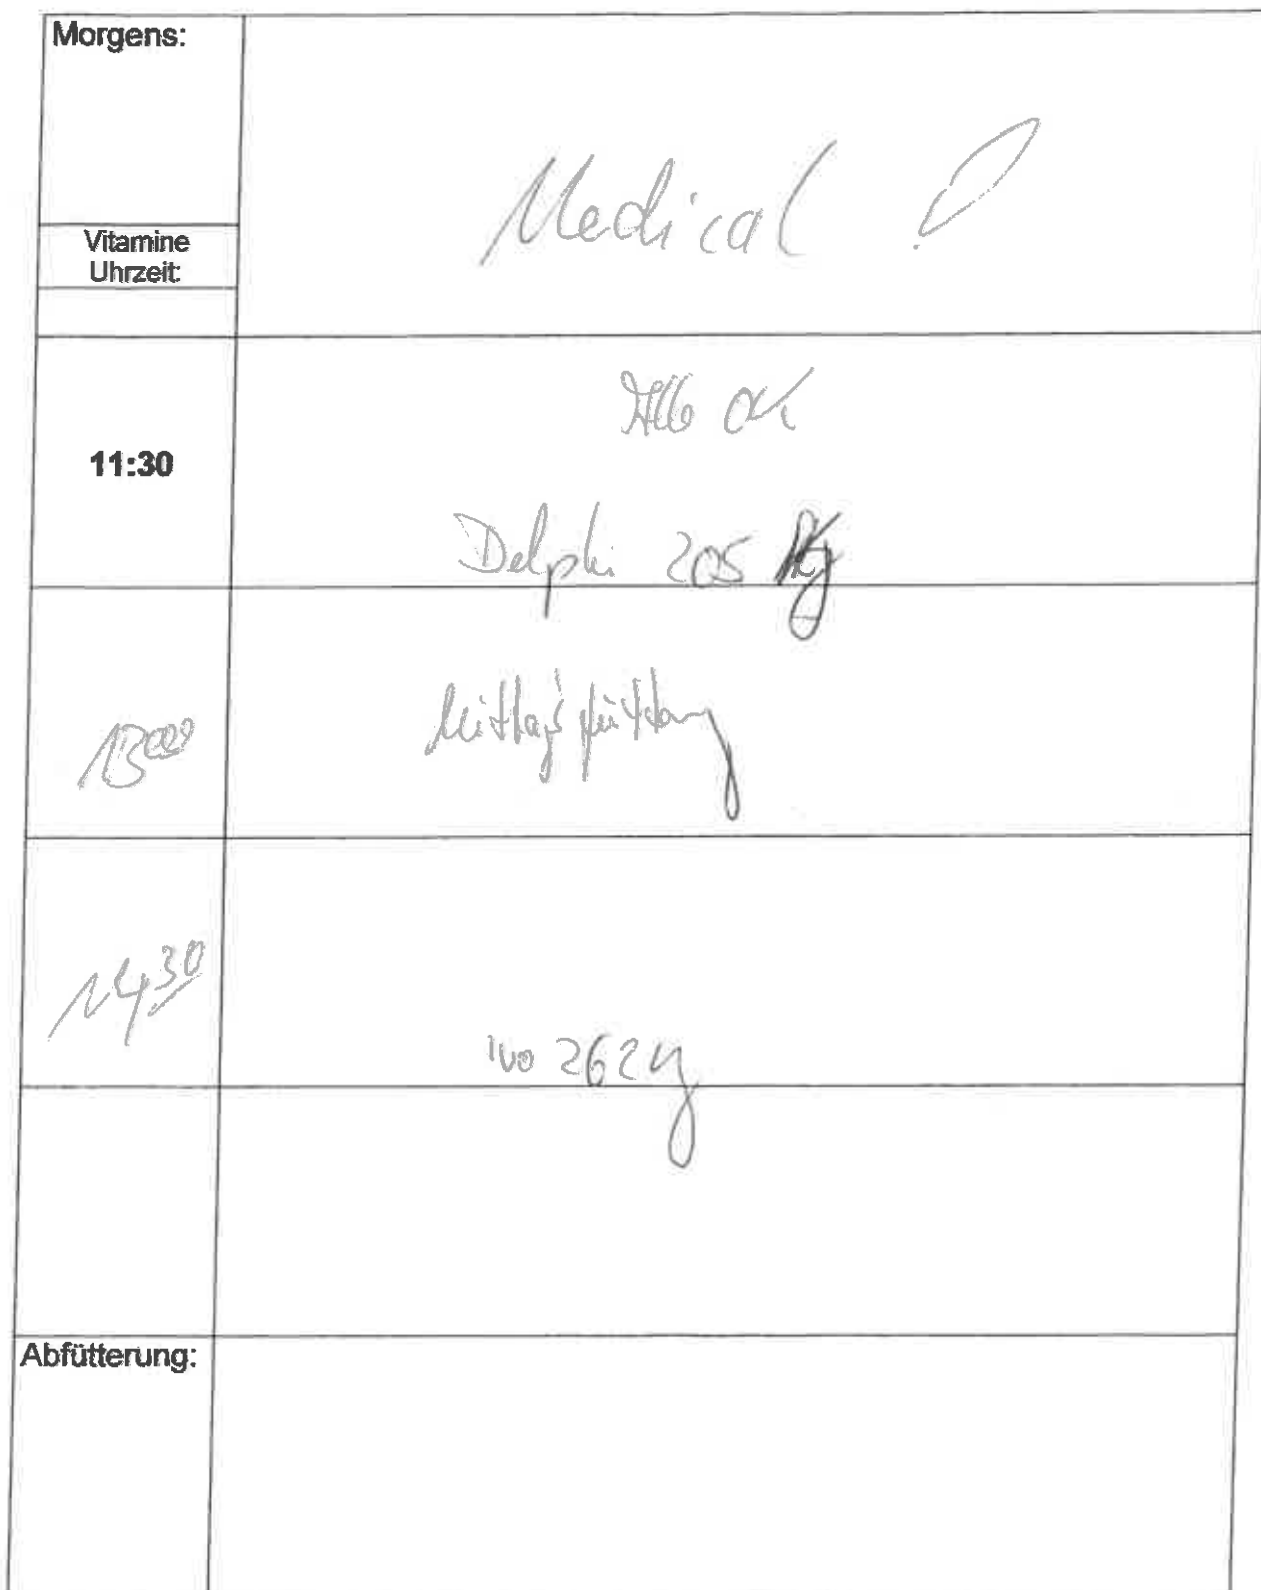 Morgens:
Medical
Vitamine
Uhrzeit:
Alle OK
11:30
Delphi 205 Kg
13 00
Mittagsfütterung
14 30
Ivo 262 Kg
Abfütterung: